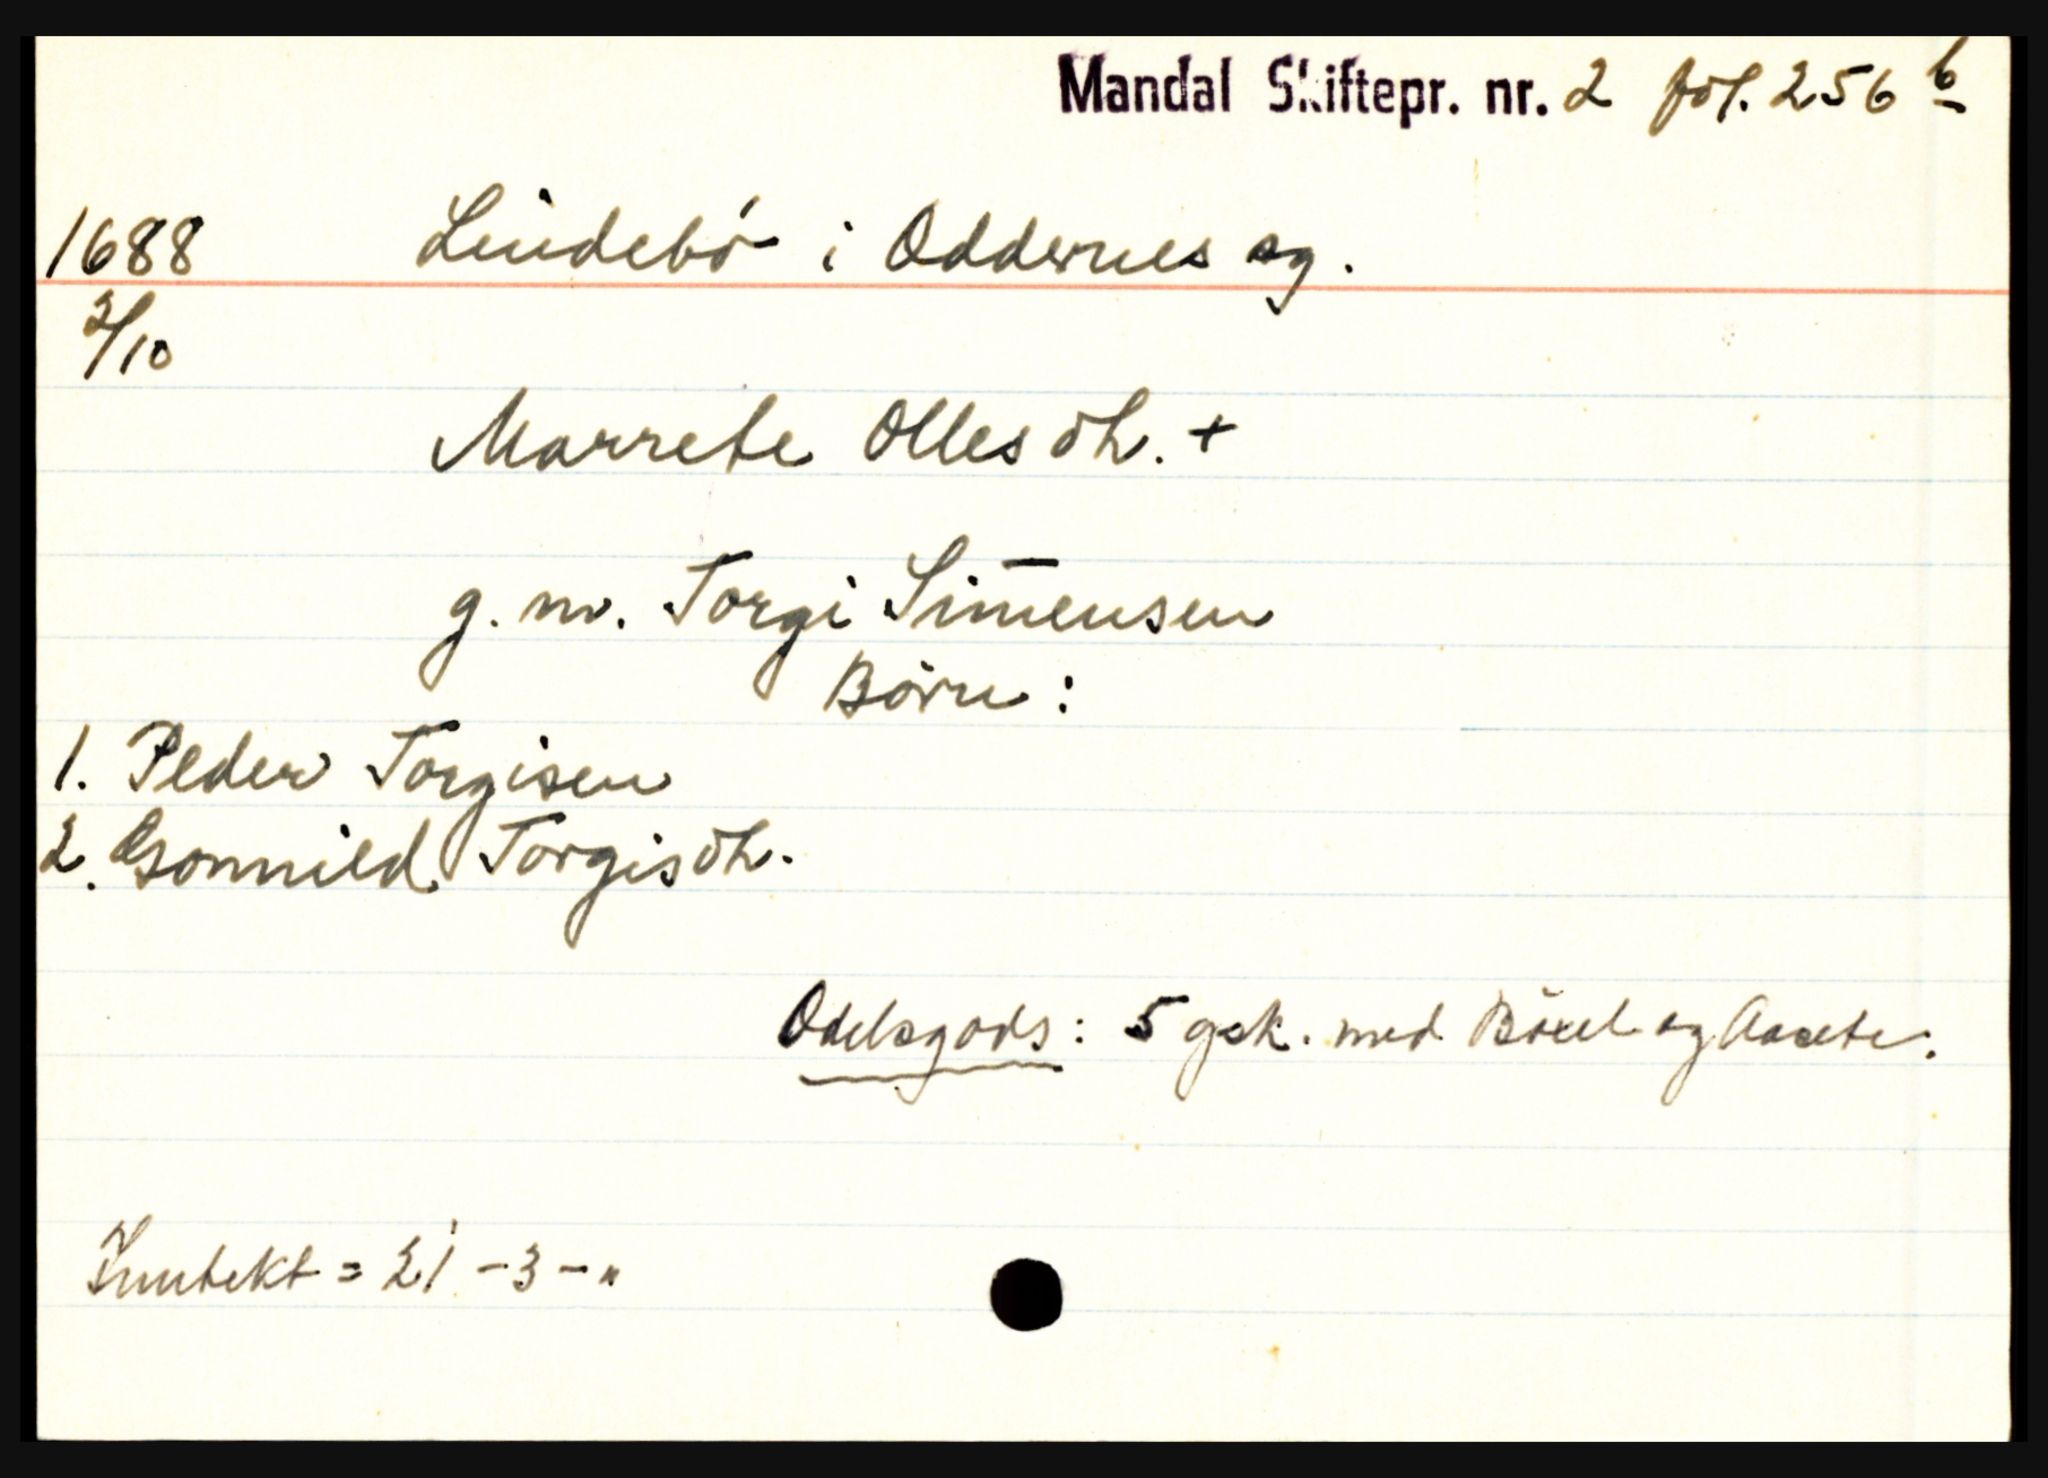 Mandal Skiftepr. nr. 2 fol. 256 b
1688 Lindebö i Oddernes sg.
2/10
Marrete Ollesdh. +
g. m. Torgi Simensen
Börn:
1. Peder Torgisen
2. Gonnild Torgisdh.
Odelsgods: 5 gsk. med Böxel og Aasete.
Inntekt = 21 - 3 - "